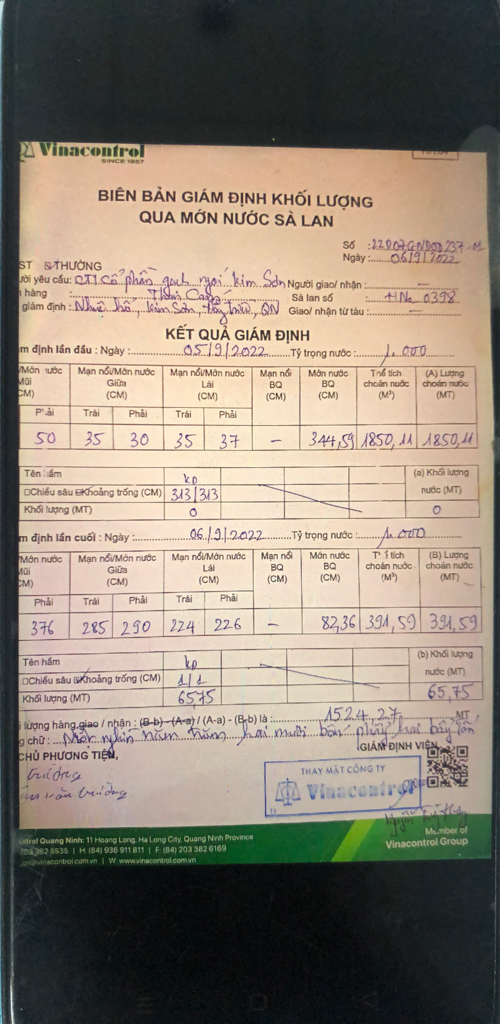 Vinacontrol
SINCE 1957
BIÊN BẢN GIÁM ĐỊNH KHỐI LƯỢNG
QUA MỚN NƯỚC SÀ LAN
Số :22D07GND00237-01
Ngày : 06/9/2022
ST THƯỜNG
ười yêu cầu: CTY cổ phần gạch ngói Kim Sơn Người giao/ nhận : —
hàng : Than Cám Sà lan số : HNa 0398
giám định : Nhuệ hổ, Kim Sơn, Đông triều, QN Giao/ nhận từ tàu : —
KẾT QUẢ GIÁM ĐỊNH
m định lần đầu : Ngày : 05/9/2022 Tỷ trọng nước : 1.000
/Mớn nước Mũi CM) Mạn nổi/Mớn nước Giữa (CM) Mạn nổi/Mớn nước Lái (CM) Mạn nổi BQ (CM) Mớn nước BQ (CM) Thể tích choán nước (M³) (A) Lượng choán nước (MT)
Phải Trái Phải Trái Phải
50 35 30 35 37 – 344,59 1850,11 1850,11
Tên hầm kp (a) Khối lượng nước (MT)
Chiều sâu Khoảng trống (CM) 313/313
Khối lượng (MT) 0 0
m định lần cuối : Ngày: 06/9/2022 Tỷ trọng nước : 1.000
/Mớn nước Mũi CM) Mạn nổi/Mớn nước Giữa (CM) Mạn nổi/Mớn nước Lái (CM) Mạn nổi BQ (CM) Mớn nước BQ (CM) Thể tích choán nước (M³) (B) Lượng choán nước (MT)
Phải Trái Phải Trái Phải
376 285 290 224 226 – 82,36 391,59 391,59
Tên hầm kp (b) Khối lượng nước (MT)
Chiều sâu Khoảng trống (CM) 1/1
Khối lượng (MT) 65,75 65,75
i lượng hàng giao / nhận : (B-b) - (A-a) / (A-a) - (B-b) là : 1524,27 MT
g chữ : Một nghìn năm trăm hai mươi bốn phẩy hai bảy tấn
CHỦ PHƯƠNG TIỆN, GIÁM ĐỊNH VIÊN,
THAY MẶT CÔNG TY
Vinacontrol
trường
văn trường
ntrol Quang Ninh: 11 Hoang Long, Ha Long City, Quang Ninh Province
203 382 5535 | H: (84) 936 911 811 | F: (84) 203 382 6169
@vinacontrol.com.vn | W: www.vinacontrol.com.vn
Member of
Vinacontrol Group